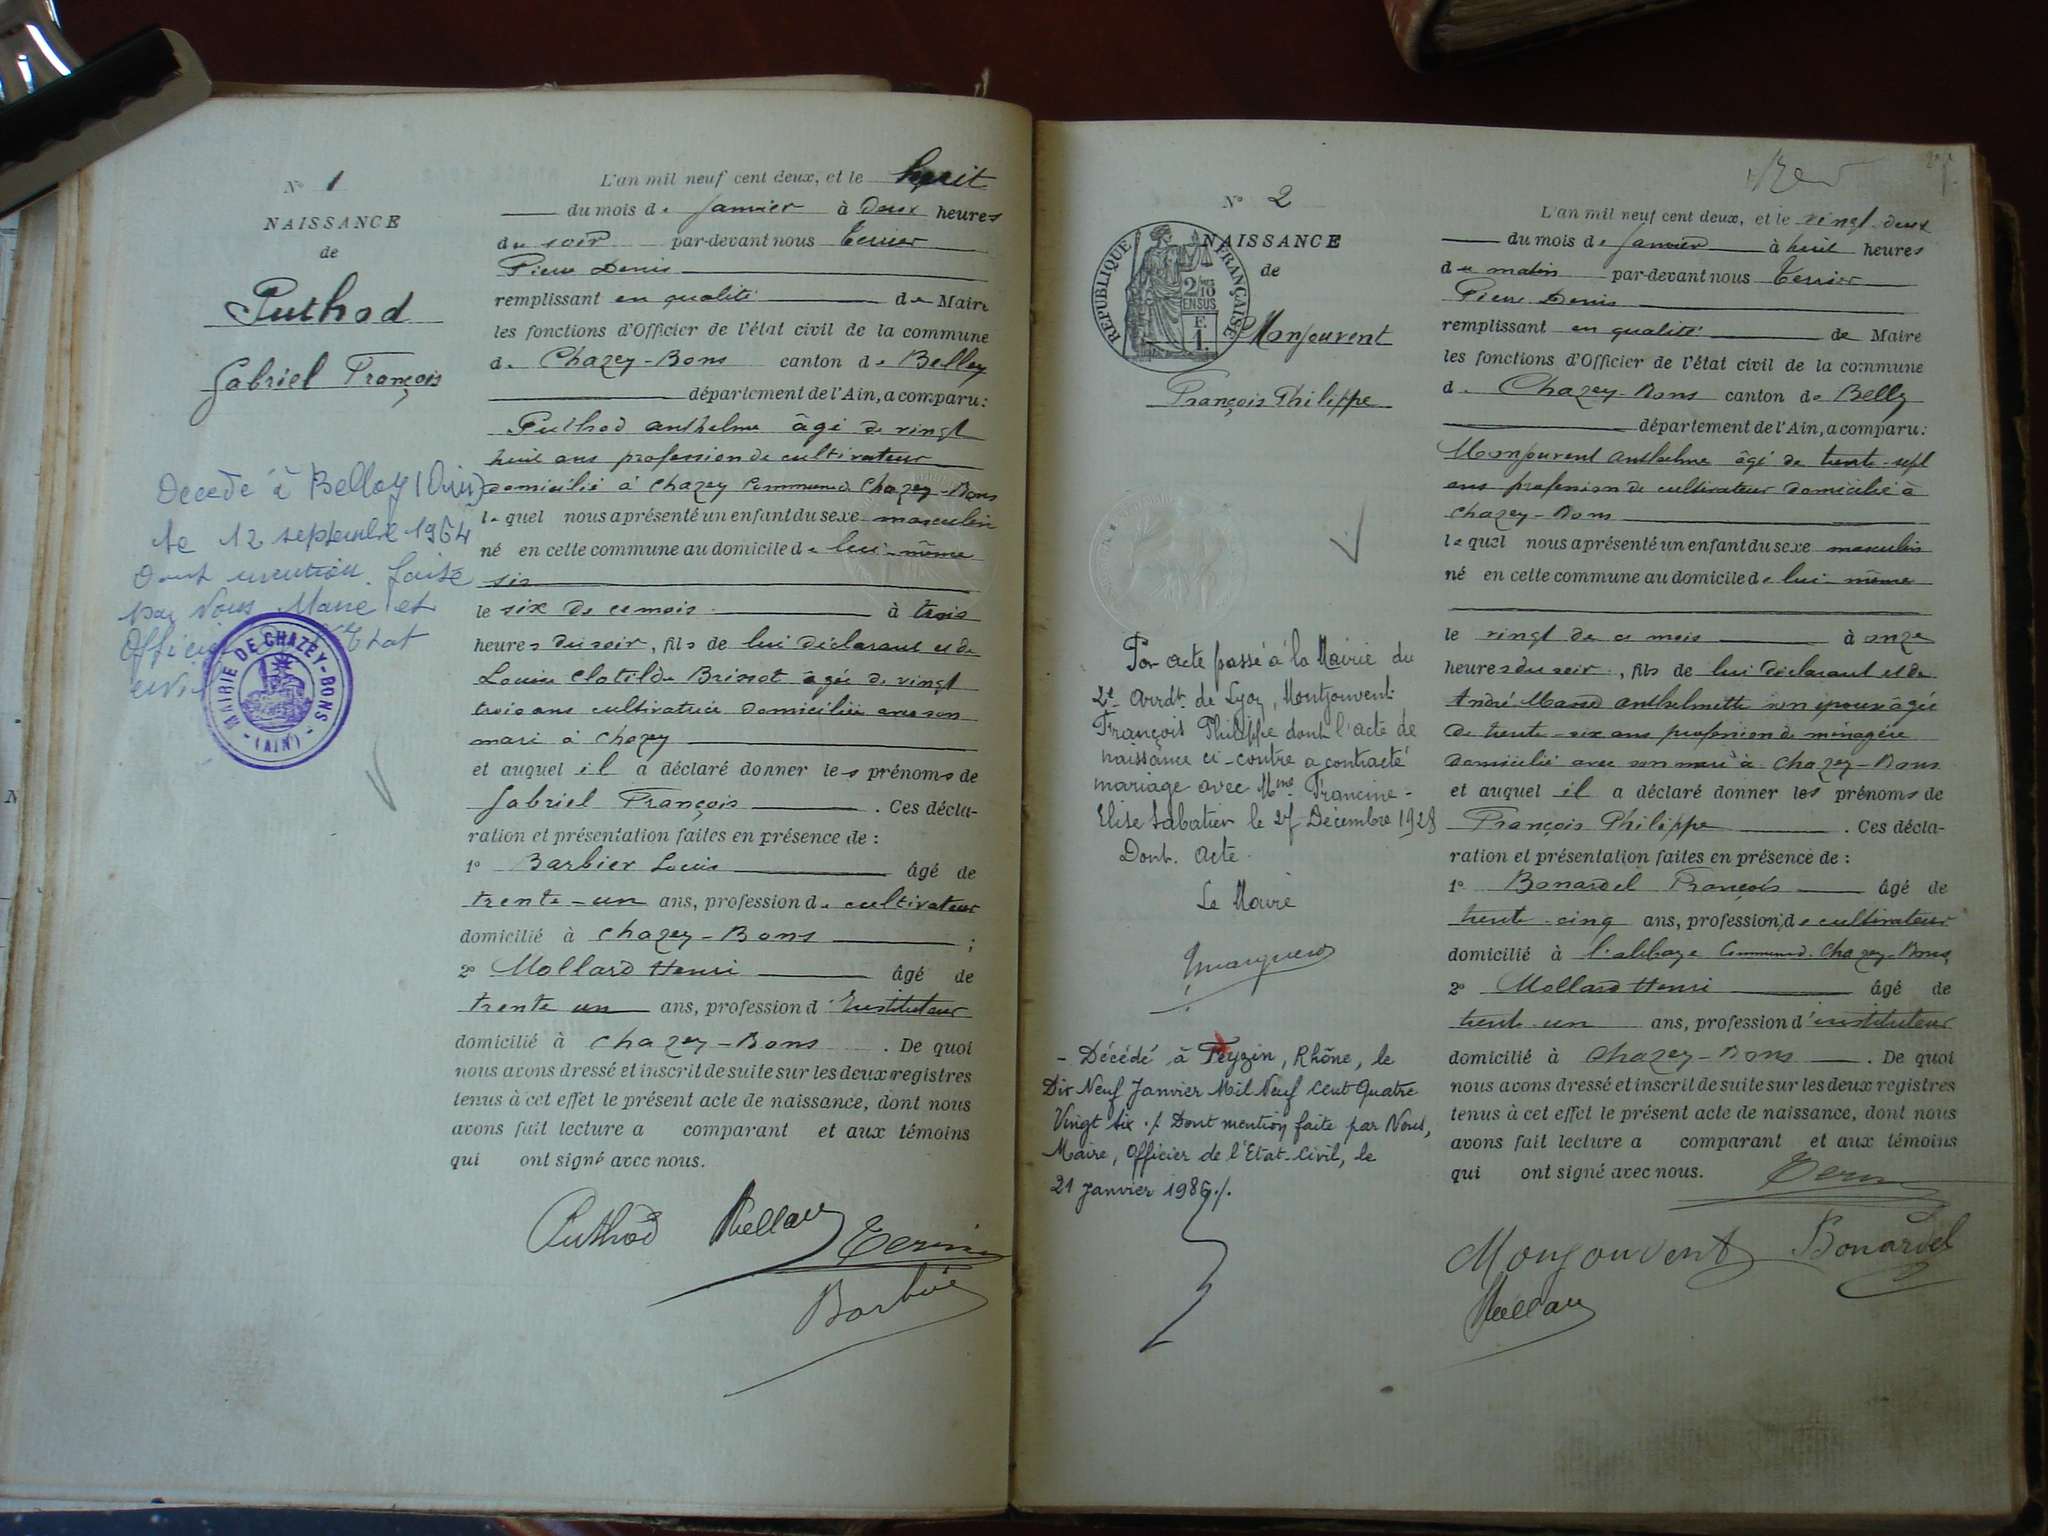 N° 1
NAISSANCE
de
Puthod
Gabriel François
Décédé à Belley (Ain)
le 12 septembre 1964
Dont mention faite
par Nous Maire et
Officier Etat
civil
MAIRIE DE CHAZEY-BONS
- (AIN) -
L'an mil neuf cent deux, et le huit
du mois de Janvier à deux heures
du soir par-devant nous Terrier
Pierre Denis
remplissant en qualité de Maire
les fonctions d'Officier de l'état civil de la commune
de Chazey-Bons canton de Belley
département de l'Ain, a comparu:
Puthod anthelme âgé de vingt
huit ans profession de cultivateur
domicilié à Chazey Commune d. Chazey-Bons
lequel nous a présenté un enfant du sexe masculin
né en cette commune au domicile de lui-même
six
le six de ce mois à trois
heures du soir, fils de lui déclarant et de
Louise Clotilde Brissot âgée de vingt
trois ans cultivatrice domiciliée avec son
mari à Chazey
et auquel il a déclaré donner les prénoms de
Gabriel François . Ces décla-
ration et présentation faites en présence de :
1° Barbier Louis âgé de
trente-un ans, profession de cultivateur
domicilié à Chazey-Bons ;
2° Mollard Henri âgé de
trente un ans, profession d'Instituteur
domicilié à Chazey-Bons . De quoi
nous avons dressé et inscrit de suite sur les deux registres
tenus à cet effet le présent acte de naissance, dont nous
avons fait lecture a comparant et aux témoins
qui ont signé avec nous.
Puthod Mollard Terrier
Barbier
N° 2
NAISSANCE
de
REPUBLIQUE FRANÇAISE
2/10
EN SUS
F.
1.
Monjouvent
François Philippe
Par acte passé à la Mairie du
2e Arrdt. de Lyon, Montjouvent
François Philippe dont l'acte de
naissance ci-contre a contracté
mariage avec Mme Francine-
Elise Sabatier le 27 Décembre 1928
Dont. Acte.
Le Maire
- Décédé à Feyzin, Rhône, le
Dix Neuf Janvier Mil Neuf Cent Quatre
Vingt six ./. Dont mention faite par Nous,
Maire, Officier de l'Etat-Civil, le
21 Janvier 1986./.
L'an mil neuf cent deux, et le vingt-deux
du mois de Janvier à huit heures
du matin par-devant nous Terrier
Pierre Denis
remplissant en qualité de Maire
les fonctions d'Officier de l'état civil de la commune
de Chazey-Bons canton de Belley
département de l'Ain, a comparu:
Monjouvent Anthelme âgé de trente-sept
ans profession de cultivateur domicilié à
Chazey-Bons
lequel nous a présenté un enfant du sexe masculin
né en cette commune au domicile de lui-même
le vingt de ce mois à onze
heures du soir, fils de lui déclarant et de
André Anthelmette son épouse âgée
de trente-six ans profession de ménagère
domiciliée avec son mari à Chazey-Bons
et auquel il a déclaré donner les prénoms de
François Philippe . Ces décla-
ration et présentation faites en présence de :
1° Bonardel François âgé de
trente-cinq ans, profession de cultivateur
domicilié à l'abbaye Commune d. Chazey-Bons,
2° Mollard Henri âgé de
trente-un ans, profession d'instituteur
domicilié à Chazey-Bons . De quoi
nous avons dressé et inscrit de suite sur les deux registres
tenus à cet effet le présent acte de naissance, dont nous
avons fait lecture a comparant et aux témoins
qui ont signé avec nous. Terrier
Monjouvent Bonardel
Mollard